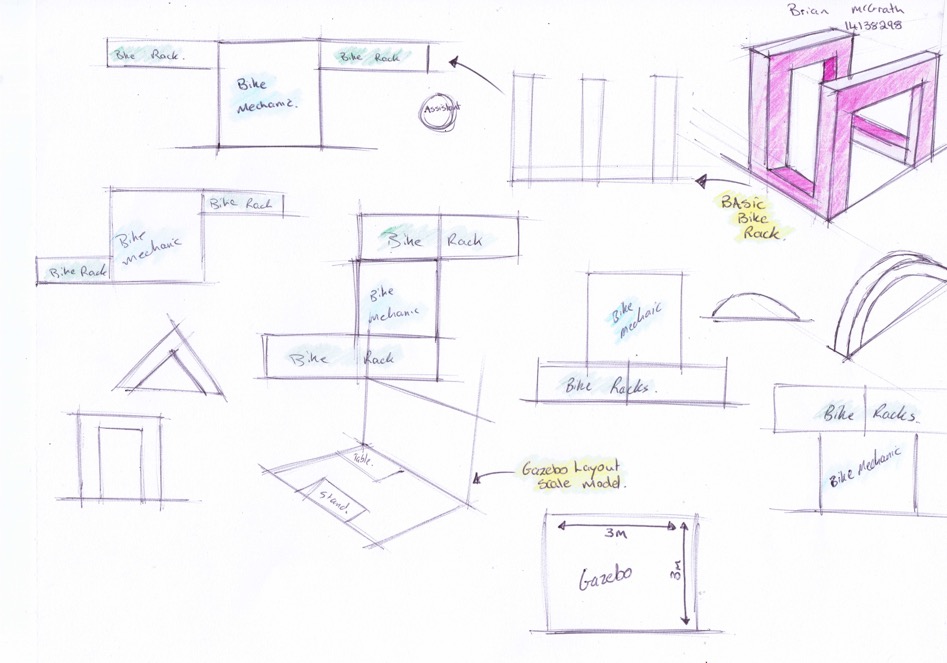 Brian McGrath
14138298
Bike Rack.
Bike Rack
Bike
Mechanic.
Assistant
BAsic
Bike
Rack.
Bike Rack
Bike
mechanic
Bike Rack
Bike Rack
Bike
Mechanic
Bike Rack
Bike
Mechanic
Bike Racks.
Bike Racks.
Bike Mechanic
Table.
Stand.
Gazebo Layout
Scale Model.
3M
Gazebo
3M